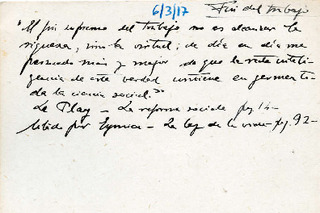 6/3/17 Fin del trabajo
"El fin supremo del trabajo no es alcanzar la
riqueza, sino la virtud; de día en día me
persuado más y mejor de que la recta inteli-
gencia de esta verdad contiene en germen to-
da la ciencia social."
Le Play - La reforma sociale pag 14-
Citado por Eymieu - La ley de la vida - pg. 92-